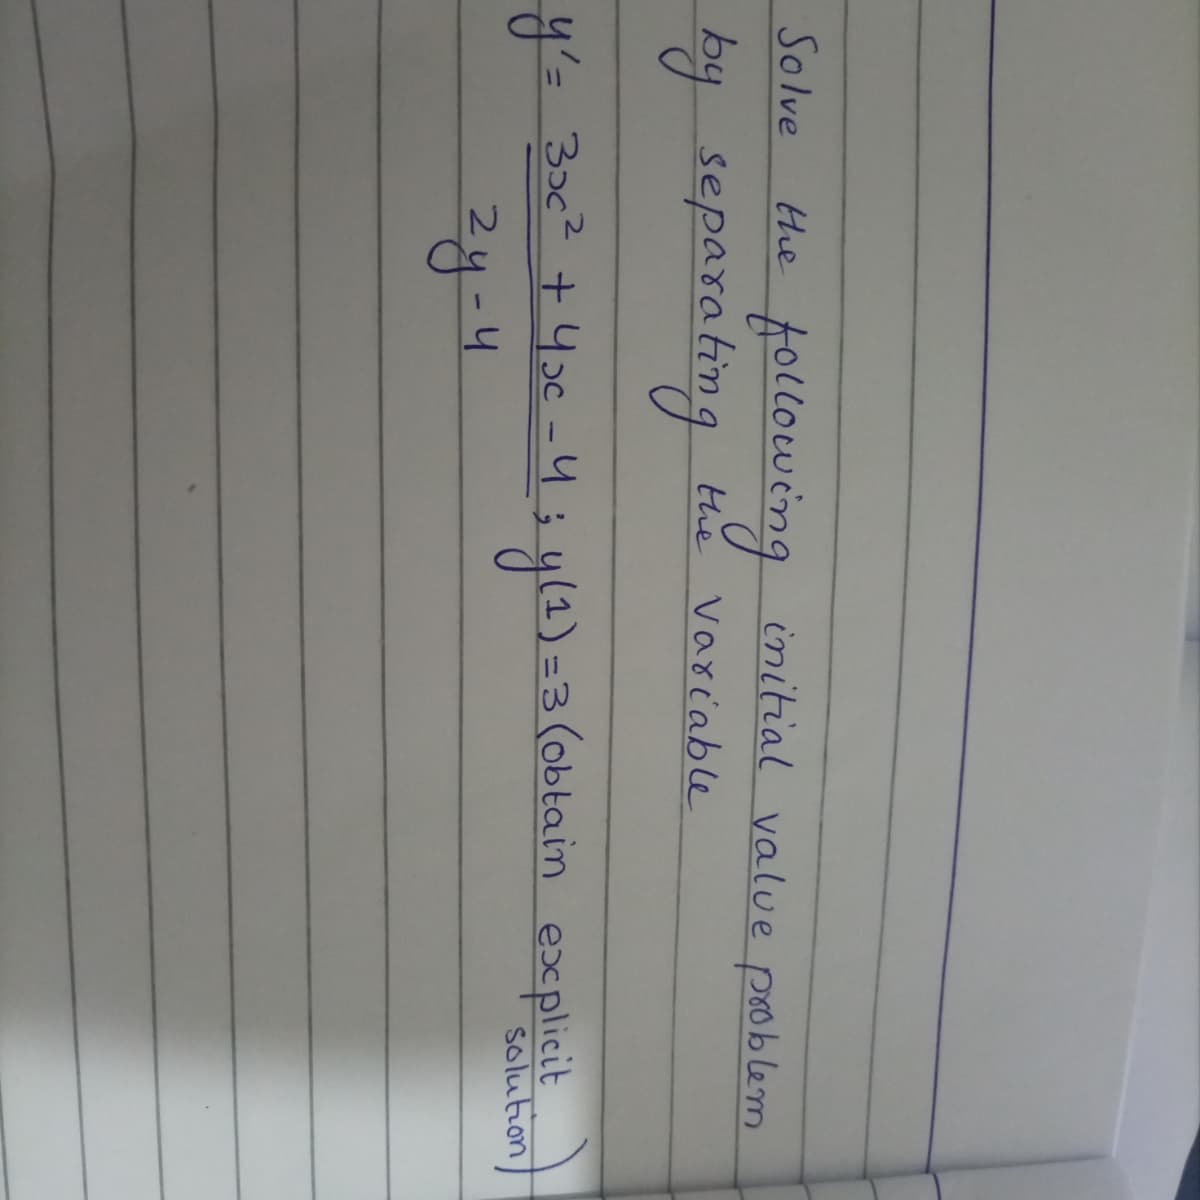 Solve the following initial value problem
by separating the variable
y' = 3x² + 4x - 4 ; y(1) = 3 (obtain explicit
2y - 4 solution)